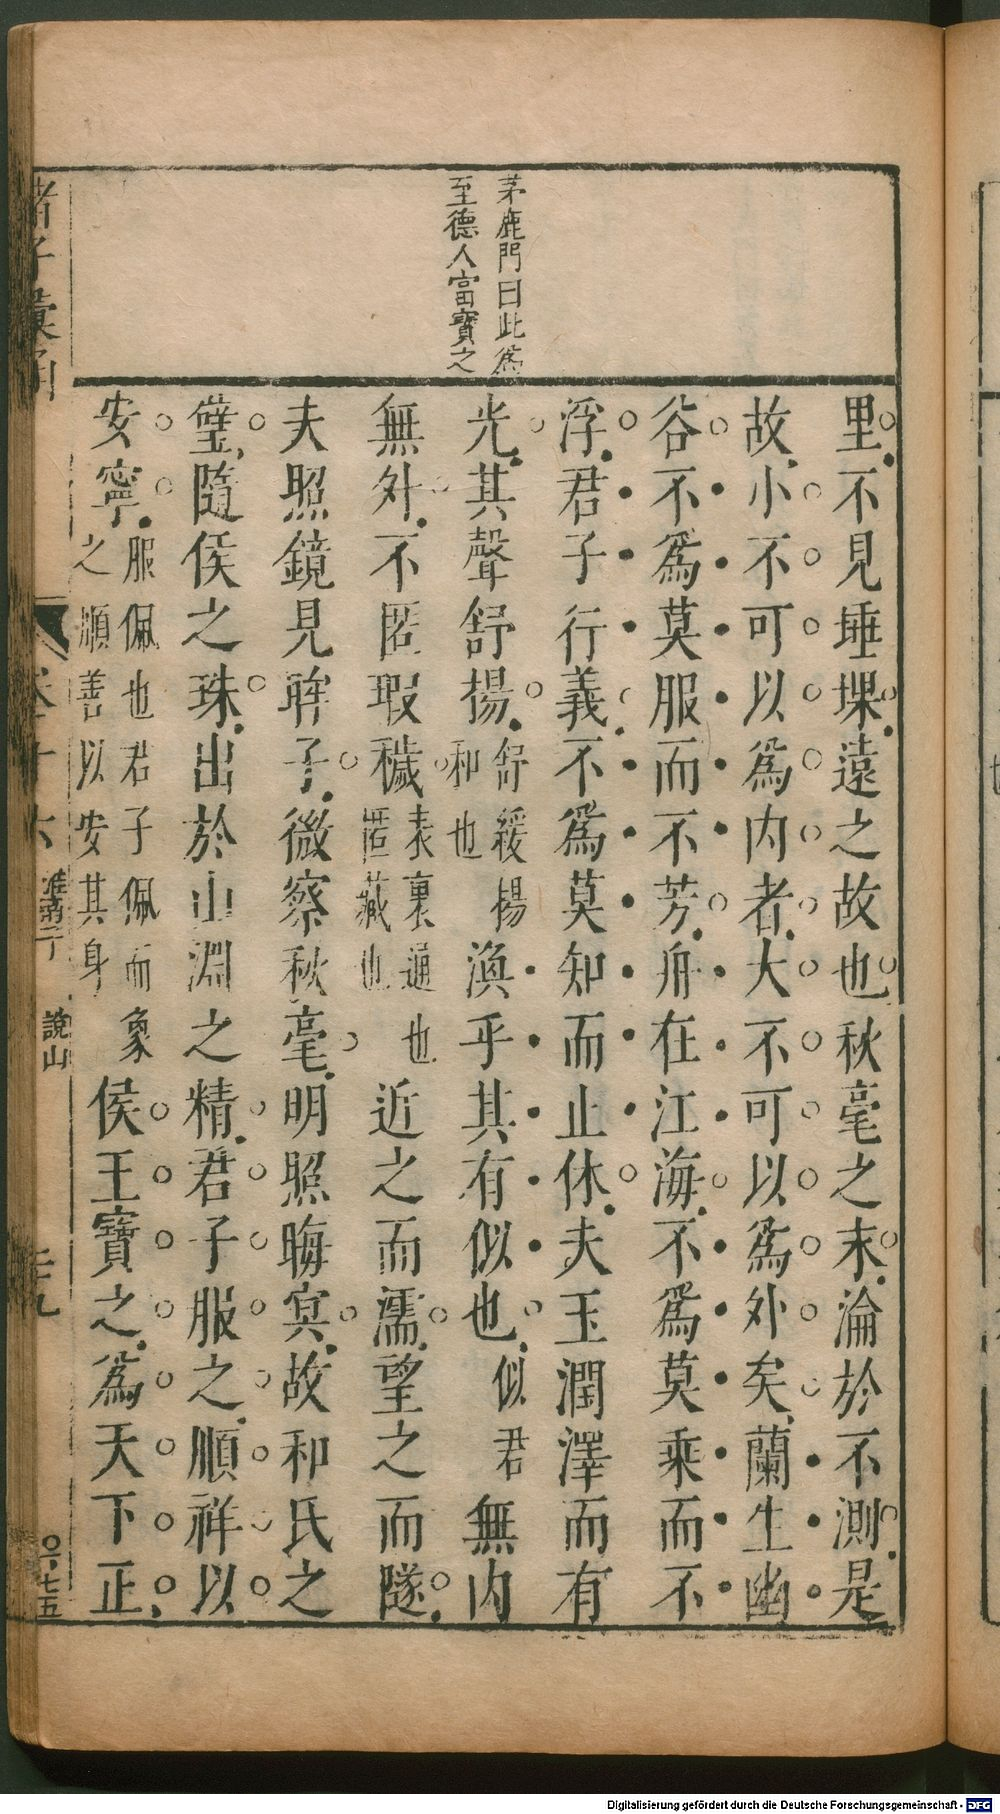 茅鹿門曰此爲
至德人富寶之
里不見埵堁遠之故也秋毫之末淪於不測是
故小不可以爲内者大不可以爲外矣蘭生幽
谷不爲莫服而不芳舟在江海不爲莫乘而不
浮君子行義不爲莫知而止休夫玉潤澤而有
光其聲舒揚舒緩揚和也渙乎其有似也似君無内
無外不匿瑕穢表裏通也匿藏也近之而濡望之而隧
夫照鏡見眸子微察秋毫明照晦冥故和氏之
璧隨侯之珠出於山淵之精君子服之順祥以
安寧服佩也君子佩而象之順善以安其身侯王寶之爲天下正
諸子彙函 卷十六 淮南子 說山 二十九 〇七五
Digitalisierung gefördert durch die Deutsche Forschungsgemeinschaft - DFG